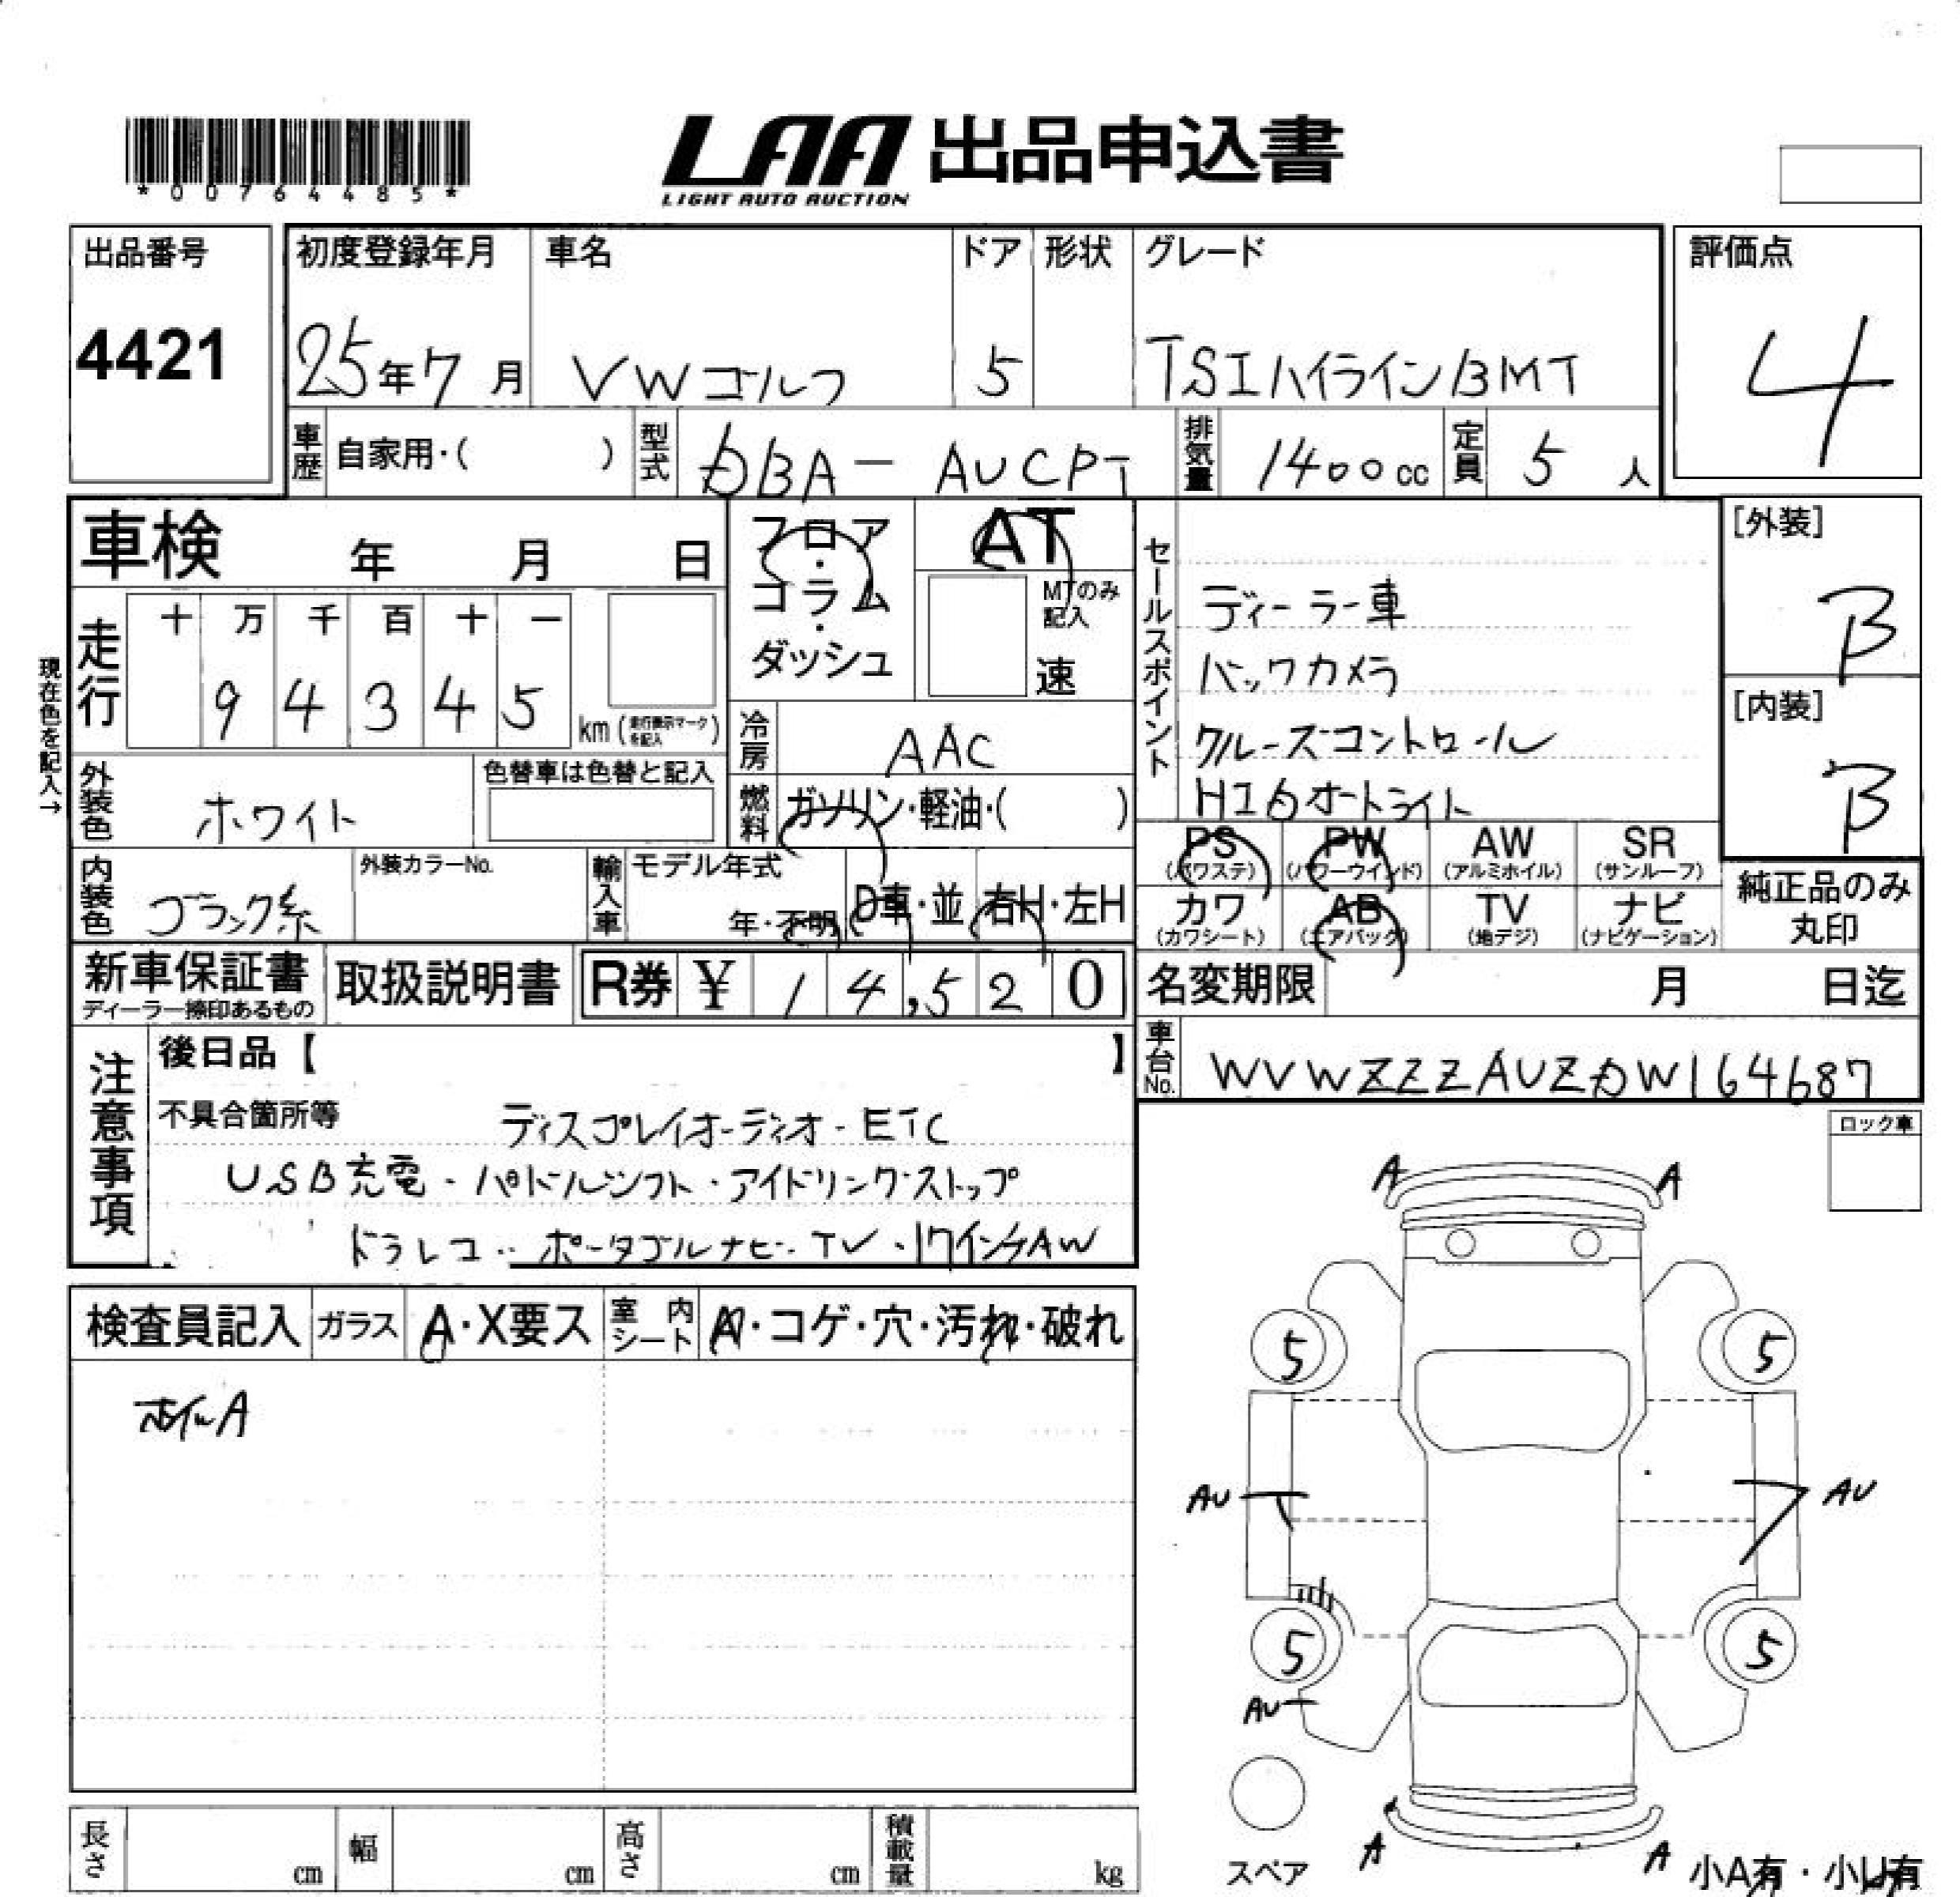 *00764485*
LAA 出品申込書
LIGHT AUTO AUCTION
出品番号
4421
初度登録年月
25年7月
車名
VWゴルフ
ドア
5
形状
グレード
TSIハイラインBMT
評価点
4
車歴
自家用・( )
型式
DBA-AUCPT
排気量
1400cc
定員
5人
車検 年 月 日
フロア・コラム・ダッシュ
AT
MTのみ記入
速
走行
十 万 千 百 十 一
9 4 3 4 5
km(走行表示マークを記入)
現在色を記入→
冷房
AAC
外装色
ホワイト
色替車は色替と記入
燃料
ガソリン・軽油・( )
内装色
ブラック系
外装カラーNo.
輸入車
モデル年式
年・不明
D車・並
右H・左H
新車保証書
ディーラー捺印あるもの
取扱説明書
R券 ¥ 14,520
セールスポイント
ディーラー車
バックカメラ
クルーズコントロール
HIDオートライト
[外装]
B
[内装]
B
PS (パワステ)
PW (パワーウインド)
AW (アルミホイル)
SR (サンルーフ)
カワ (カワシート)
AB (エアバック)
TV (地デジ)
ナビ (ナビゲーション)
純正品のみ丸印
名変期限 月 日迄
車台No.
WVWZZZAUZDW164687
注意事項
後日品【 】
不具合箇所等
ディスプレイオーディオ・ETC
USB充電・パドルシフト・アイドリングストップ
ドラレコ・ポータブルナビ・TV・17インチAW
ロック車
検査員記入
ガラス
A・X要ス
室内シート
A・コゲ・穴・汚れ・破れ
ホイルA
A A
5 5
AU AU
5 5
AU
スペア
A A
小A有・小U有
長さ cm
幅 cm
高さ cm
積載量 kg